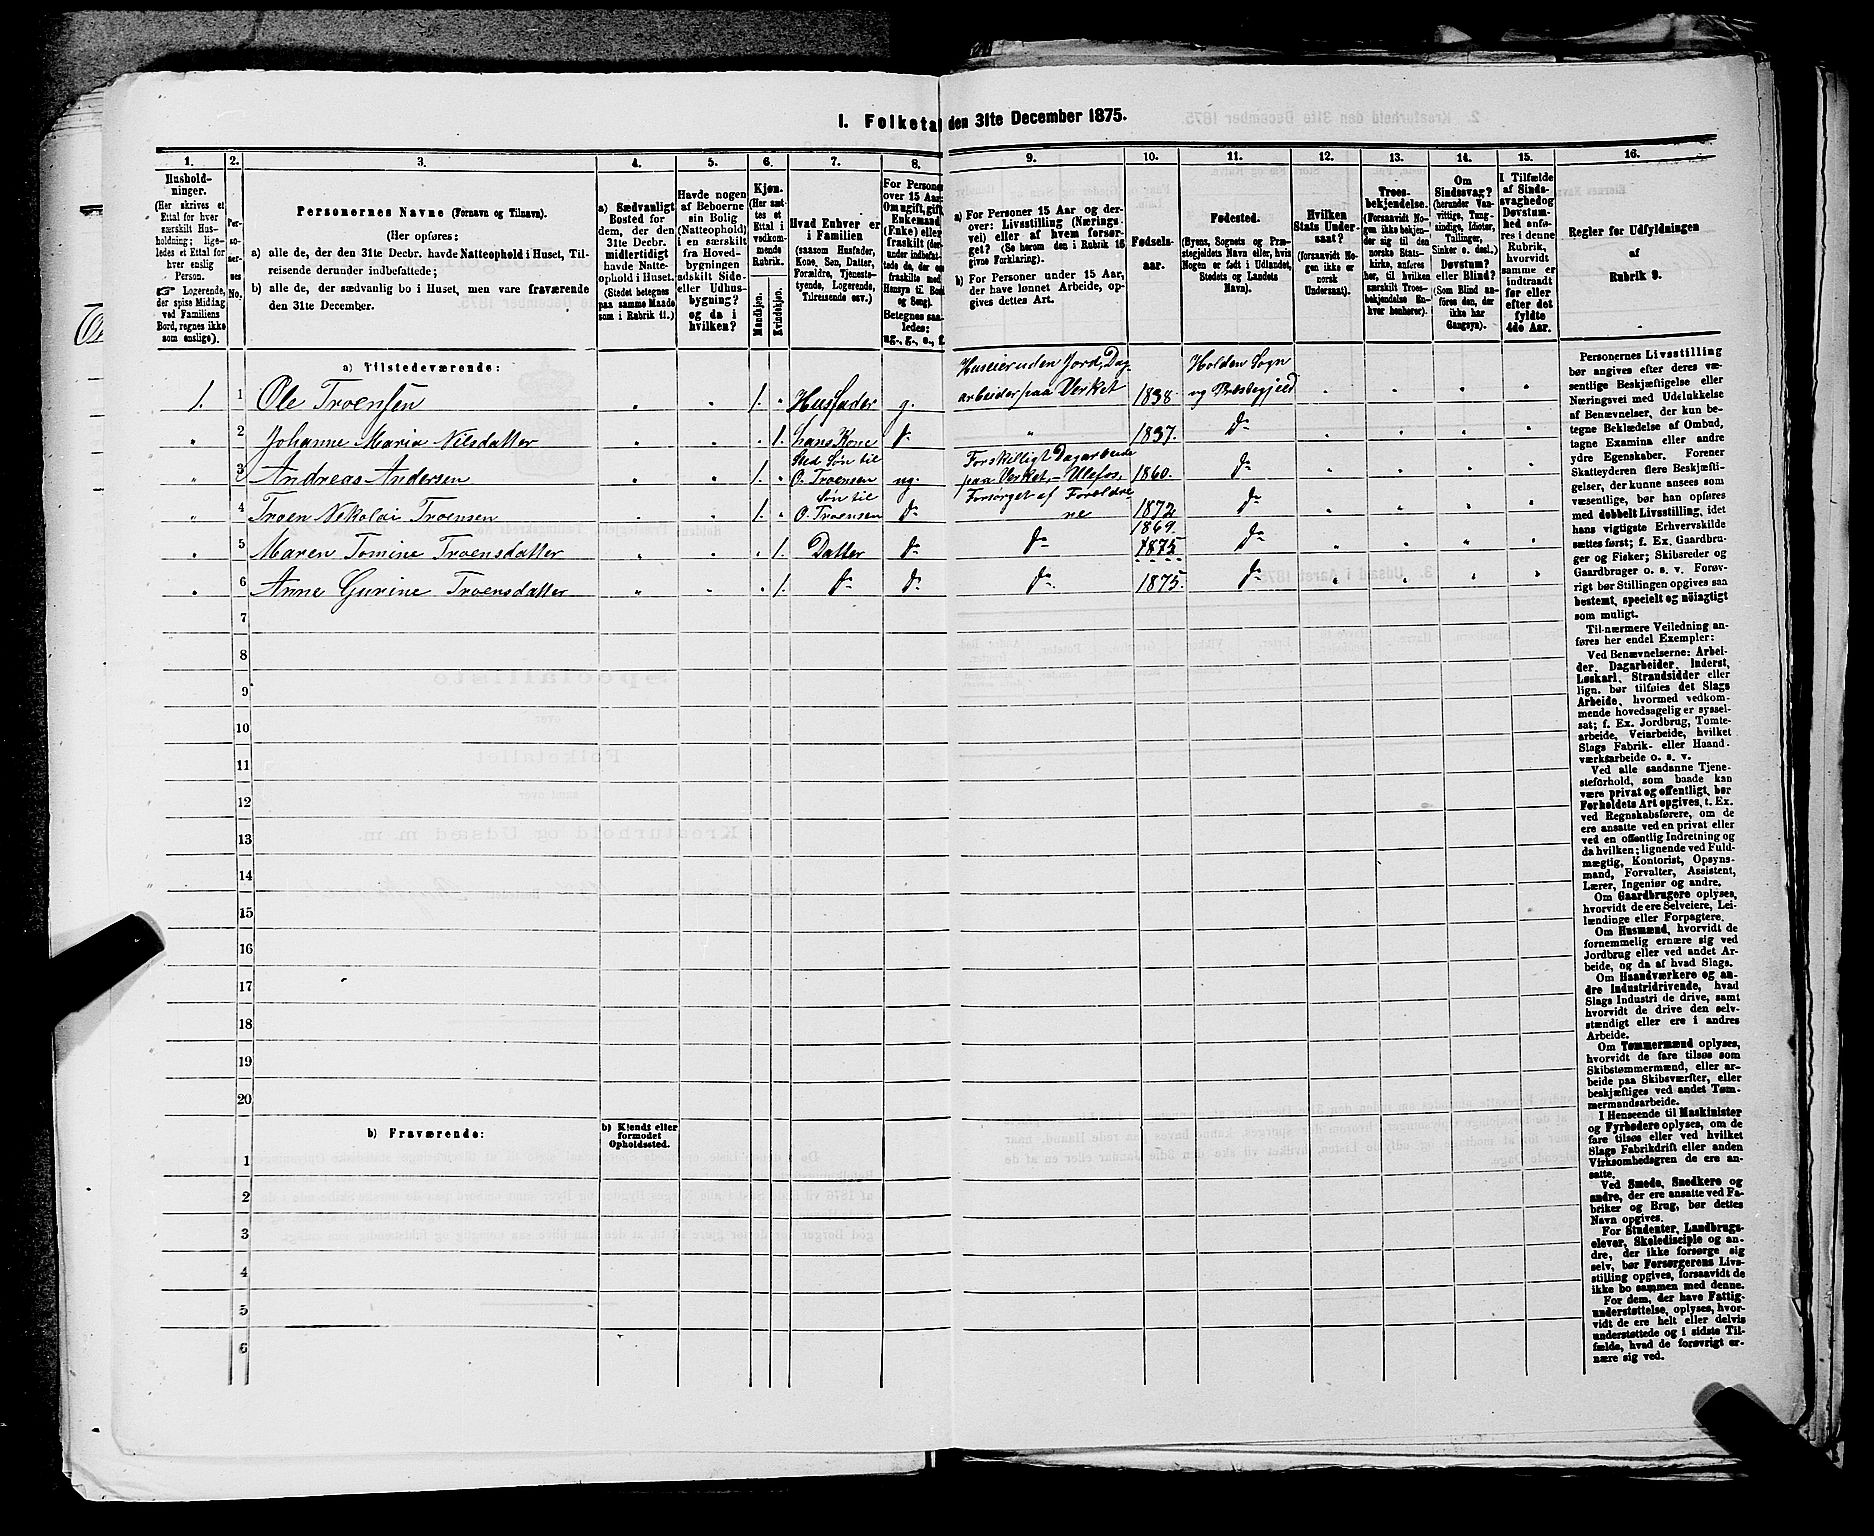 I. Folketal den 31te December 1875.
1. 2. 3. 4. 5. 6. 7. 8. 9. 10. 11. 12. 13. 14. 15. 16.
Hushold-
ninger.
(Her skrives et
Ettal for hver
særskilt Hus-
holdning; lige-
ledes et Ettal for
hver enslig
Person.
☞ Logerende,
der spise Middag
ved Familiens
Bord, regnes ikke
som enslige).
Per-
so-
ner-
nes
No.
Personernes Navne (Fornavn og Tilnavn).
(Her opføres:
a) alle de, der den 31te Decbr. havde Natteophold i Huset, Til-
reisende derunder indbefattede;
b) alle de, der sædvanlig bo i Huset, men vare fraværende
den 31te December.
a) Sædvanligt
Bosted for
dem, der den
31te Decbr.
midlertidigt
havde Natte-
ophold i Huset.
(Stedet betegnes
paa samme Maade
som i Rubrik 11.)
Havde nogen
af Beboerne
sin Bolig
(Natteophold)
i en særskilt
fra Hoved-
bygningen
adskilt Side-
eller Udhus-
bygning?
og da i
hvilken?
Kjøn.
(Her sæt-
tes et
Ettal i
vedkom-
mende
Rubrik.
Mandkjøn.
Kvindekjøn.
Hvad Enhver er
i Familien
(saasom Husfader,
Kone, Søn, Datter,
Forældre, Tjeneste-
tyende, Logerende,
Tilreisende osv.)
For Personer
over 15 Aar:
Om ugift, gift,
Enkemand
(Enke) eller
fraskilt (der-
under indbefat-
tede de, der ere
fraskilte med
Hensyn til Bord
og Seng).
Betegnes saa-
ledes:
ug., g., e., f.
a) For Personer 15 Aar og der-
over: Livsstilling (Nærings-
vei) eller af hvem forsør-
get? (Se herom den i Rubrik 16
givne Forklaring).
b) For Personer under 15 Aar,
der have lønnet Arbeide, op-
gives dettes Art.
Fødsels-
aar.
Fødested.
(Byens, Sognets og Præ-
stegjeldets Navn eller, hvis
Nogen er født i Udlandet,
Stedets og Landets
Navn).
Hvilken
Stats Under-
saat?
(forsaavidt No-
gen ikke er
norsk
Undersaat).
Troes-
bekjendelse.
(Forsaavidt No-
gen ikke bekjen-
der sig til den
norske Stats-
kirke, anføres
her, til hvilken
særskilt Troes-
bekjendelse En-
hver henhører).
Om
Sindssvag?
(herunder Van-
vittige, Tung-
sindige, Idioter,
Tullinger,
Sinker o. desl.)
Døvstum?
eller Blind?
(Som Blind an-
føres den, der
ikke har
Gangsyn).
I Tilfælde
af Sinds-
svaghed og
Døvstum-
hed anfø-
res i denne
Rubrik,
hvorvidt
samme er
indtraadt
før eller
efter det
fyldte
4de Aar.
Regler for Udfyldningen
af
Rubrik 9.
a) Tilstedeværende:
Huseier uden Jord, Dag-
Holden Sogn
1. 1 Ole Troensen 1. Husfader g. arbeider paa Verket 1838 og Præstegjeld
2 Johanne Maria Nilsdatter 1. hans Kone do 1837. do
Sted Søn til
Forskelligt Dagarbeide
3 Andreas Andersen 1. O. Troensen ug. paa Verket, – Ulefos, 1860. do
Søn til
Forsørget af Foreldre
4 Troen Nekolai Troensen 1. O. Troensen do ne 1872 do
1869.
5 Maren Tomine Troensdatter 1. Datter do do 1875 do
6 Anne Gurine Troensdatter 1. do do do 1875. do
7
8
9
10
11
12
13
14
15
16
17
18
19
20
b) Fraværende:
b) Kjendt eller
formodet
Opholdssted.
1
2
3
4
5
6
Personernes Livsstilling
bør angives efter deres væ-
sentlige Beskjæftigelse eller
Næringsvei med Udelukkelse
af Benævnelser, der kun be-
tegne Beklædelse af Ombud,
tagne Examina eller andre
ydre Egenskaber. Forener
Skatteyderen flere Beskjæfti-
gelser, der kunne ansees som
væsentlige, bør han opføres
med dobbelt Livsstilling, idet
hans vigtigste Erhvervskilde
sættes først; f. Ex. Gaardbru-
ger og Fisker; Skibsreder og
Gaardbruger o. s. v. Forøv-
rigt bør Stillingen opgives saa
bestemt, specielt og nöiagtigt
som muligt.
Til nærmere Veiledning an-
føres her endel Exempler:
Ved Benævnelserne: Arbei-
der, Dagarbeider, Inderst,
Løskarl, Strandsidder eller
lign. bør tilføies det Slags
Arbeide, hvormed vedkom-
mende hovedsagelig er syssel-
sat; f. Ex. Jordbrug, Tomte-
arbeide, Veiarbeide, hvilket
Slags Fabrik- eller Haand-
værksarbeide o. s. v.
Ved alle saadanne Tjene-
steforhold, som baade kan
være privat og offentligt, bør
Forholdets Art opgives, t. Ex.
ved Regnskabsførere, om de
ere ansatte ved en privat eller
ved en offentlig Indretning og
da hvilken; lignende ved Fuld-
mægtig, Kontorist, Opsyns-
mand, Forvalter, Assistent,
Lærer, Ingeniør og andre.
Om Gaardbrugere oplyses,
hvorvidt de ere Selveiere, Lei-
lændinge eller Forpagtere.
Om Husmænd, hvorvidt de
fornemmelig ernære sig ved
Jordbrug eller ved andet Ar-
beide, og da af hvad Slags.
Om Haandværkere og an-
dre Industridrivende, hvad
Slags Industri de drive, samt
hvorvidt de drive den selv-
stændigt eller ere i andres
Arbeide.
Om Tømmermænd oplyses,
hvorvidt de fare tilsøs som
Skibstømmermænd, eller ar-
beide paa Skibsværfter, eller
beskjæftiges ved andet Tøm-
mermandsarbeide.
I Henseende til Maskinister
og Fyrbødere oplyses, om de
fare tilsøs eller ved hvilket
Slags Fabrikdrift eller anden
Virksomhedsgren de ere an-
satte.
Ved Smede, Snedkere og
andre, der ere ansatte ved Fa-
briker og Brug, bør dettes
Navn opgives.
For Studenter, Landbrugs-
elever, Skoledisciple og an-
dre, der ikke forsørge sig
selv, bør Forsørgerens Livs-
stilling opgives, forsaavidt de
ikke bo sammen med denne.
For dem, der have Fattig-
understøttelse, oplyses, hvor-
vidt de ere helt eller delvis
understøttede og i sidste Til-
fælde, hvad de forøvrigt er-
nære sig ved.